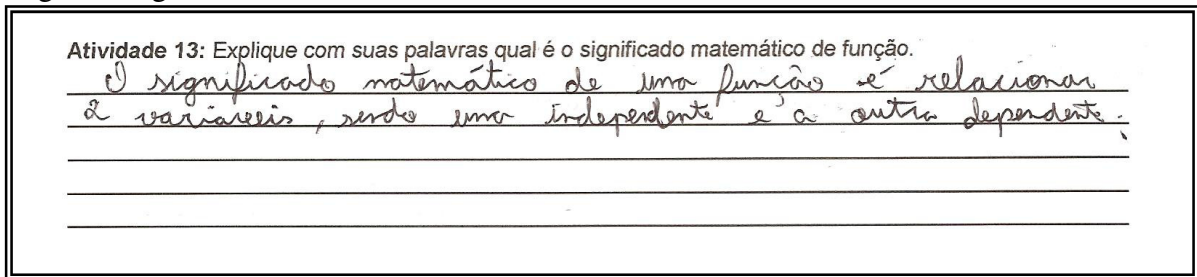 Atividade 13: Explique com suas palavras qual é o significado matemático de função.
O significado matemático de uma função é relacionar
2 variáveis, sendo uma independente e a outra dependente.